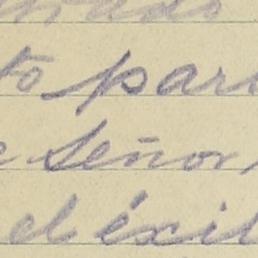 to par
Señor,
el éxil